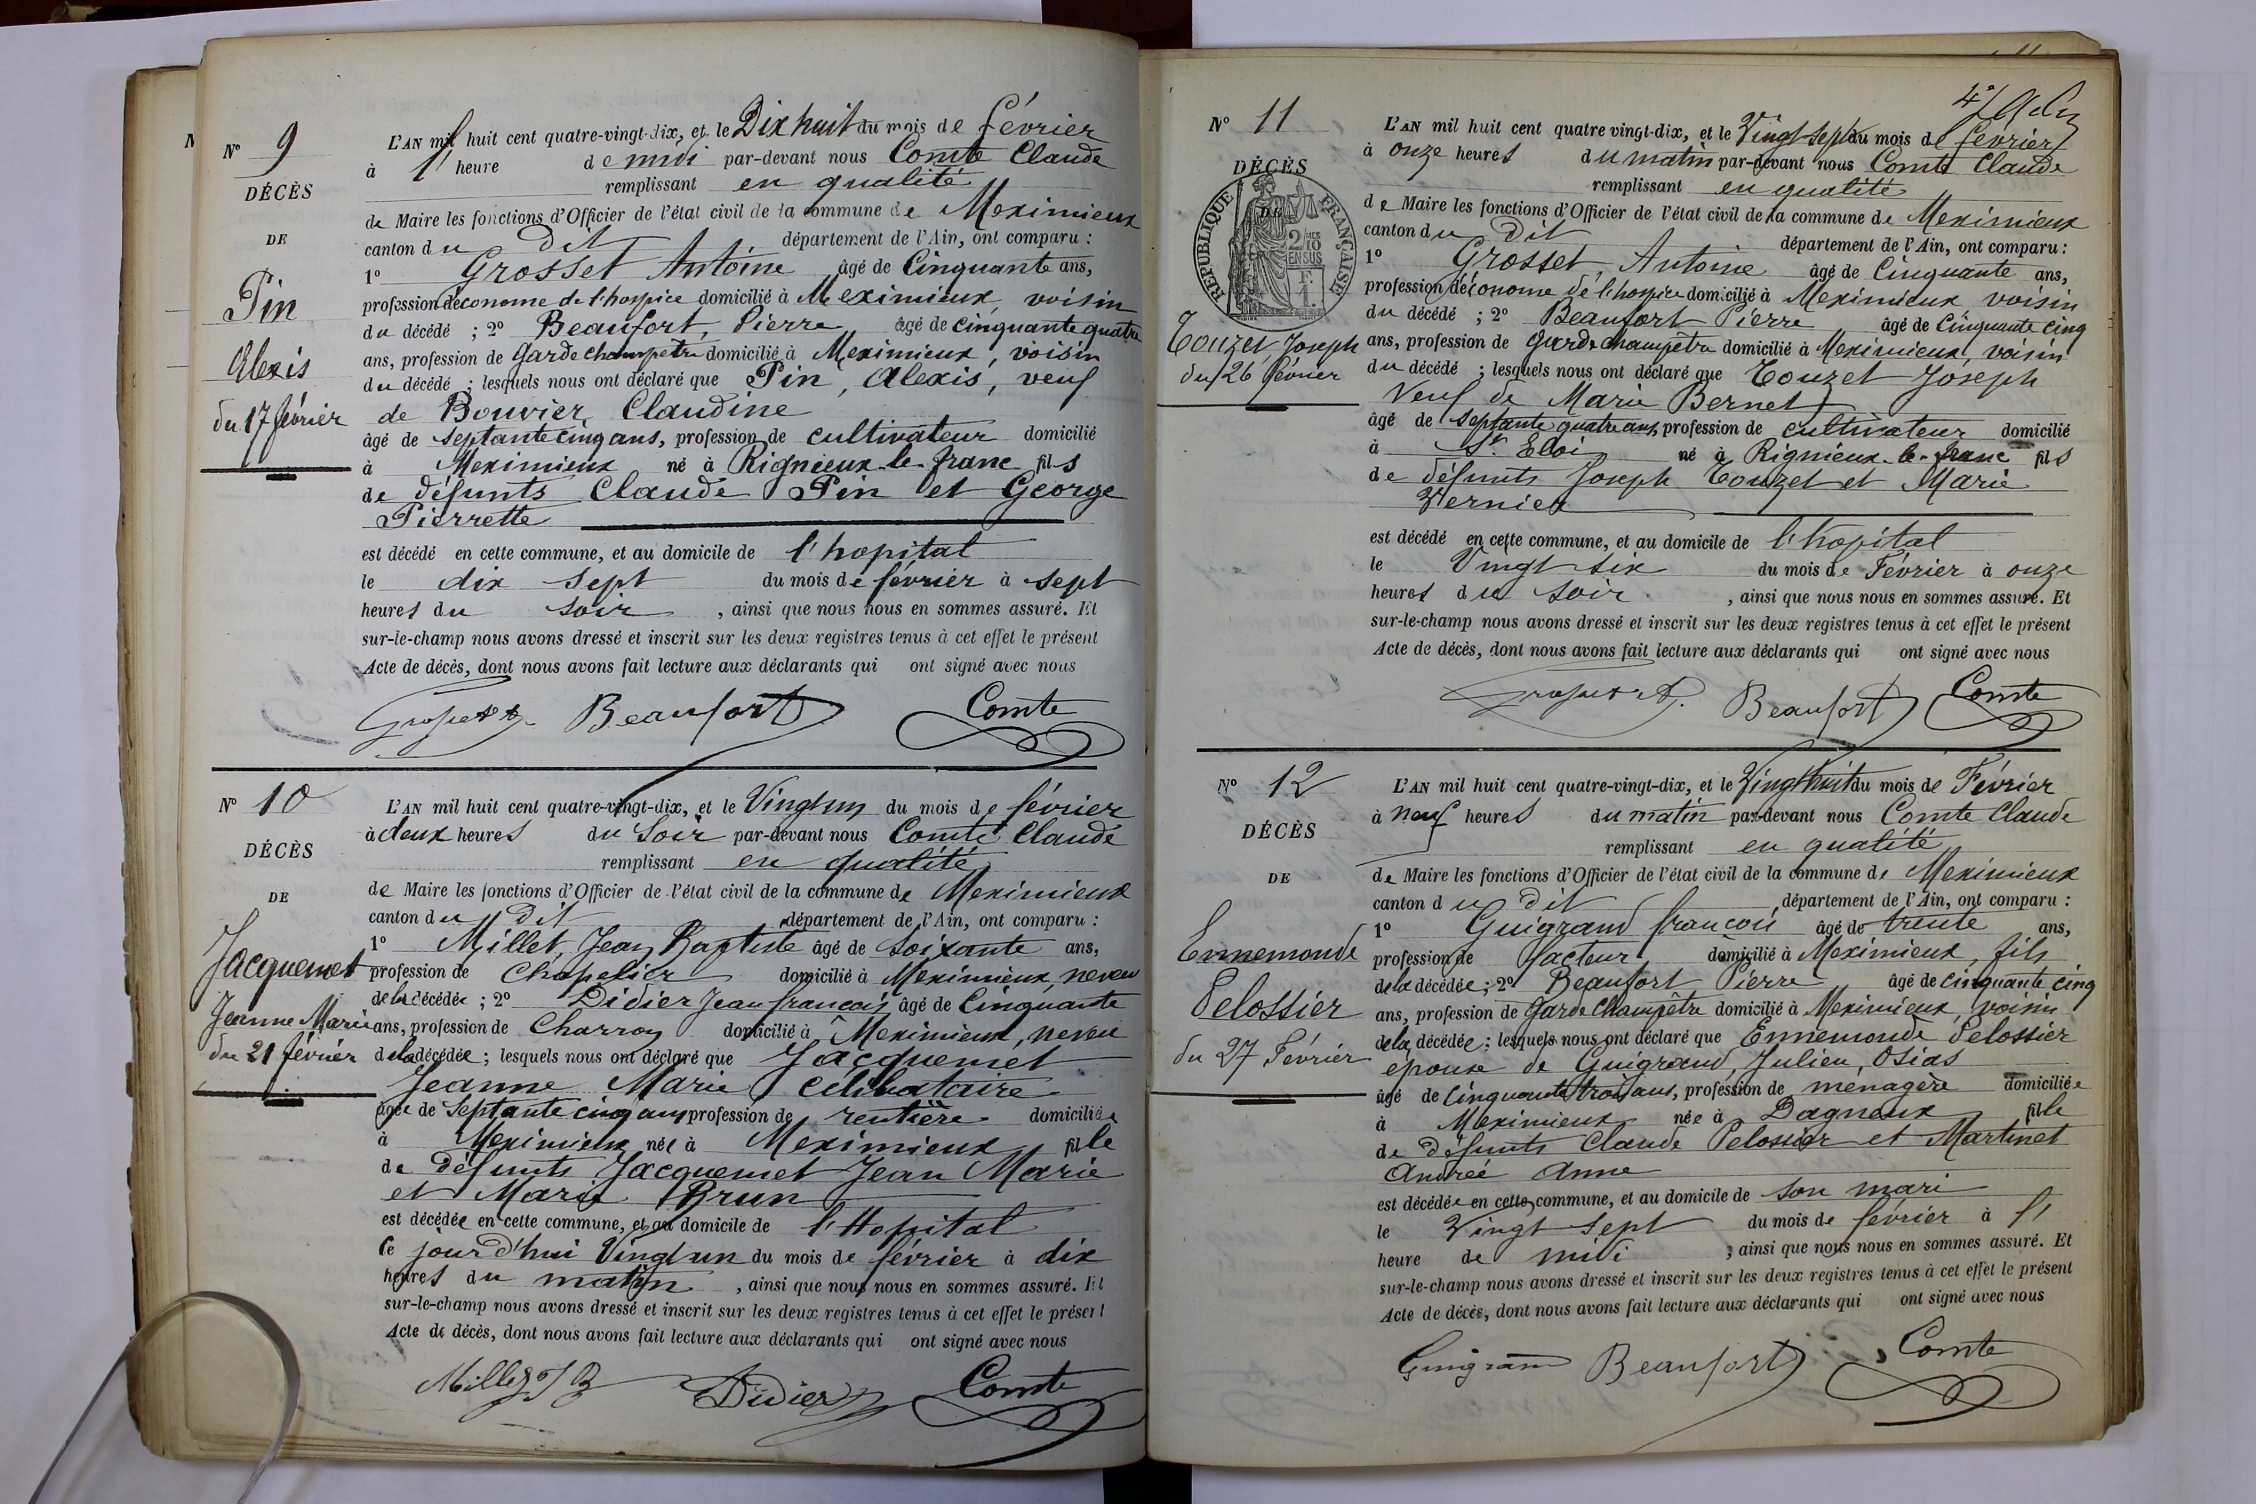 N° 9
DÉCÈS
DE
Pin
Alexis
du 17 février
L'AN mil huit cent quatre-vingt-dix, et le Dix huit du mois de février
à 1 heure de midi par-devant nous Comte Claude
remplissant en qualité
de Maire les fonctions d'Officier de l'état civil de la commune de Meximieux
canton du dit département de l'Ain, ont comparu :
1° Grosset Antoine âgé de Cinquante ans,
profession d'économe de l'hospice domicilié à Meximieux, voisin
du décédé ; 2° Beaufort, Pierre âgé de cinquante quatre
ans, profession de Garde champetre domicilié à Meximieux, voisin
du décédé ; lesquels nous ont déclaré que Pin, Alexis, veuf
de Bouvier Claudine
âgé de septante cinq ans, profession de cultivateur domicilié
à Meximieux né à Rignieux-le-franc fils
de défunts Claude Pin et George
Pierrette
est décédé en cette commune, et au domicile de l'hopital
le dix sept du mois de février à sept
heures du soir, ainsi que nous nous en sommes assuré. Et
sur-le-champ nous avons dressé et inscrit sur les deux registres tenus à cet effet le présent
Acte de décès, dont nous avons fait lecture aux déclarants qui ont signé avec nous
Beaufort Comte
N° 10
DÉCÈS
DE
Jacquemet
Jeanne Marie
du 21 février
L'AN mil huit cent quatre-vingt-dix, et le Vingt un du mois de février
à deux heures du Soir par-devant nous Comte Claude
remplissant en qualité
de Maire les fonctions d'Officier de l'état civil de la commune de Meximieux
canton du dit département de l'Ain, ont comparu :
1° Millet, Jean Baptiste âgé de soixante ans,
profession de Chapelier domicilié à Meximieux, neveu
de la décédée ; 2° Didier Jean françois âgé de Cinquante
ans, profession de Charron domicilié à Meximieux, neveu
de la décédée ; lesquels nous ont déclaré que Jacquemet
Jeanne Marie célibataire
âgée de Septante cinq ans profession de rentière domiciliée
à Meximieux née à Meximieux fille
de défunts Jacquemet Jean Marie
et Marie Brun
est décédée en cette commune, et au domicile de l'Hopital
ce jour d'hui Vingt un du mois de février à dix
heures du matin, ainsi que nous nous en sommes assuré. Et
sur-le-champ nous avons dressé et inscrit sur les deux registres tenus à cet effet le présent
Acte de décès, dont nous avons fait lecture aux déclarants qui ont signé avec nous
Millet J B Didier Comte
N° 11
DÉCÈS
DE
RÉPUBLIQUE FRANÇAISE
2/10 EN SUS
Touzet Joseph
du 26 février
L'AN mil huit cent quatre vingt-dix, et le Vingt-sept du mois de février
à onze heures du matin par-devant nous Comte Claude
remplissant en qualité
de Maire les fonctions d'Officier de l'état civil de la commune de Meximieux
canton du dit département de l'Ain, ont comparu :
1° Grosset Antoine âgé de Cinquante ans,
profession d'économe de l'hospice domicilié à Meximieux voisin
du décédé ; 2° Beaufort Pierre âgé de Cinquante cinq
ans, profession de Garde champêtre domicilié à Meximieux, voisin
du décédé ; lesquels nous ont déclaré que Touzet Joseph
Veuf de Marie Bernet
âgé de septante quatre ans profession de cultivateur domicilié
à St Eloi né à Rignieux-le-franc fils
de défunts Joseph Touzet et Marie
Vernier
est décédé en cette commune, et au domicile de l'hopital
le Vingt six du mois de Février à onze
heures du soir, ainsi que nous nous en sommes assuré. Et
sur-le-champ nous avons dressé et inscrit sur les deux registres tenus à cet effet le présent
Acte de décès, dont nous avons fait lecture aux déclarants qui ont signé avec nous
Beaufort Comte
N° 12
DÉCÈS
DE
Ennemonde
Pelossier
du 27 Février
L'AN mil huit cent quatre-vingt-dix, et le Vingt huit du mois de Février
à neuf heures du matin par-devant nous Comte Claude
remplissant en qualité
de Maire les fonctions d'Officier de l'état civil de la commune de Meximieux
canton du dit département de l'Ain, ont comparu :
1° Guigrand françois âgé de trente ans,
profession de facteur, domicilié à Meximieux, fils
de la décédée ; 2° Beaufort Pierre âgé de cinquante cinq
ans, profession de Garde Champêtre domicilié à Meximieux, voisin
de la décédée ; lesquels nous ont déclaré que Ennemonde Pelossier
epouse de Guigrand, Julien, Osias
âgé de cinquante trois ans, profession de ménagère domiciliée
à Meximieux née à Dagneux fille
de défunts Claude Pelossier et Martinet
Andrée Anne
est décédée en cette commune, et au domicile de son mari
le Vingt sept du mois de février à 1
heure de midi, ainsi que nous nous en sommes assuré. Et
sur-le-champ nous avons dressé et inscrit sur les deux registres tenus à cet effet le présent
Acte de décès, dont nous avons fait lecture aux déclarants qui ont signé avec nous
Guigrand Beaufort Comte